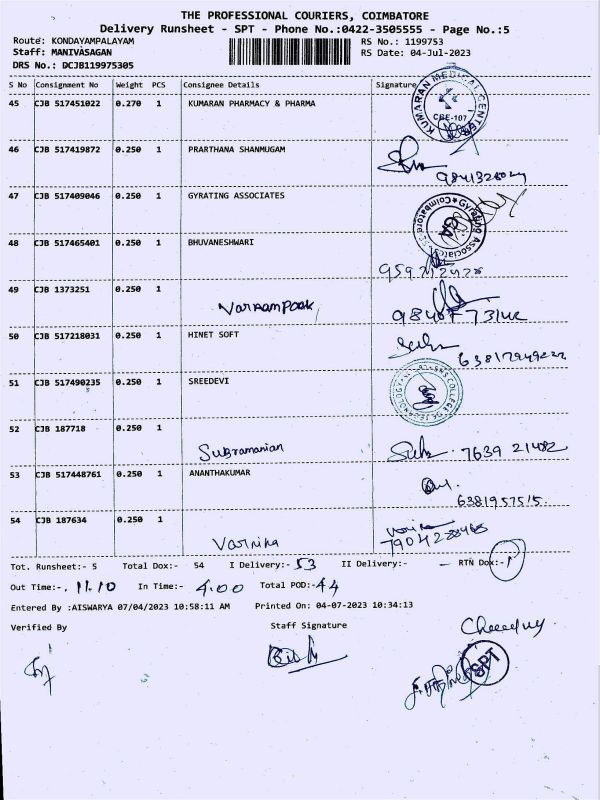 THE PROFESSIONAL COURIERS, COIMBATORE
Delivery Runsheet - SPT - Phone No.:0422-3505555 - Page No.:5
Route: KONDAYAMPALAYAM RS No.: 1199753
Staff: MANIVASAGAN RS Date: 04-Jul-2023
DRS No.: DCJB119975305
S No Consignment No Weight PCS Consignee Details Signature
45 CJB 517451022 0.270 1 KUMARAN PHARMACY & PHARMA
KUMARAN MEDICAL CENTER CBE-107
46 CJB 517419872 0.250 1 PRARTHANA SHANMUGAM
47 CJB 517409046 0.250 1 GYRATING ASSOCIATES
Gyrating Associates Coimbatore GA
48 CJB 517465401 0.250 1 BHUVANESHWARI
49 CJB 1373251 0.250 1
50 CJB 517218031 0.250 1 HINET SOFT
51 CJB 517490235 0.250 1 SREEDEVI
COLLEGE OF TECHNOLOGY
52 CJB 187718 0.250 1
Subramanian 7639 21482
53 CJB 517448761 0.250 1 ANANTHAKUMAR
6381957515
54 CJB 187634 0.250 1
Varnika
Tot. Runsheet:- 5 Total Dox:- 54 I Delivery:- 53 II Delivery:- — RTN Dox:- 1
Out Time:- 11.10 In Time:- 4.00 Total POD:- 44
Entered By :AISWARYA 07/04/2023 10:58:11 AM Printed On: 04-07-2023 10:34:13
Verified By Staff Signature
SPT